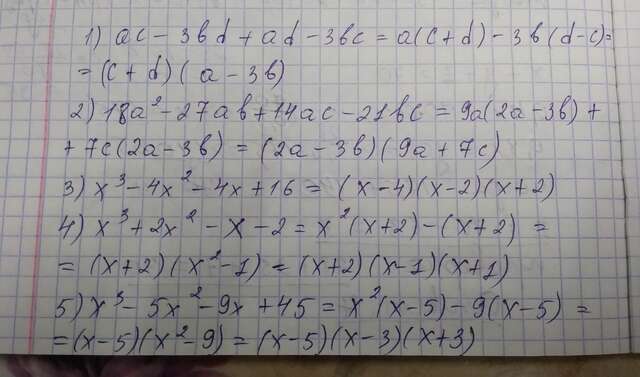 1) ac - 3вd + ad - 3вc = a(c+d) - 3в(d-c)=
= (c+d)(a-3в)
2) 18a² - 27aв + 14ac - 21вc = 9a(2a-3в) +
+ 7c(2a-3в) = (2a-3в)(9a+7c)
3) x³ - 4x² - 4x + 16 = (x-4)(x-2)(x+2)
4) x³ + 2x² - x - 2 = x²(x+2) - (x+2) =
= (x+2)(x²-1) = (x+2)(x-1)(x+1)
5) x³ - 5x² - 9x + 45 = x²(x-5) - 9(x-5) =
= (x-5)(x²-9) = (x-5)(x-3)(x+3)